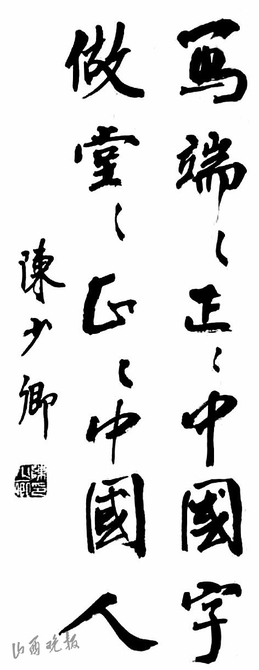 写端〻正〻中國字
做堂〻正〻中國人
陳少卿
山西晚报